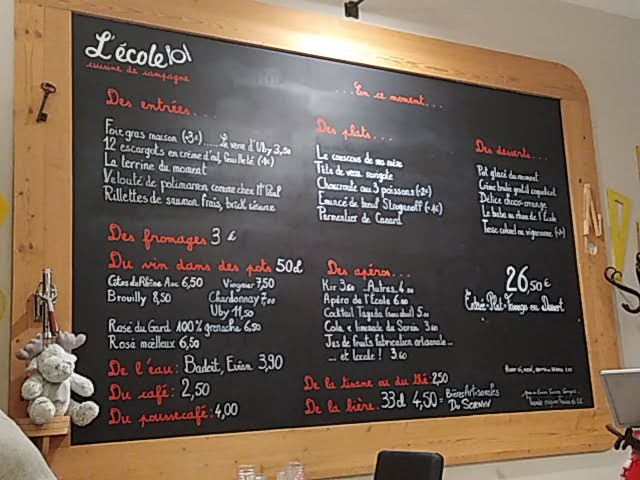 L'école
cuisine de campagne
...En ce moment...
Des entrées...
Foie gras maison (+3€)..... Le verre d'Uby 3,50
12 escargots en crème d'ail, feuilleté (+1€)
La terrine du moment
Velouté de potimarron comme chez Mr Paul
Rillettes de saumon frais, brick sésame
Des plats...
Le couscous de ma mère
Tête de veau ravigote
Choucroute aux 3 poissons (+2€)
Emincé de bœuf Stroganoff (+4€)
Parmentier de Canard
Des desserts...
Pot glacé du moment
Crème brulée
Délice choco-orange
Le baba au rhum de l'École
Des fromages 3 €
Du vin dans des pots 50cl
Côtes du Rhône Aoc 6,50 Viognier 7,50
Brouilly 8,50 Chardonnay 7,00
Uby 11,50
Rosé du Gard 100% grenache 6,50
Rosé moelleux 6,50
De l'eau: Badoit, Evian 3,90
Du café: 2,50
Du poussecafé: 4,00
Des apéros...
Kir 3.60 Autres 4.00
Apéro de l'École 6.00
Cocktail Tagada 5.00
Cola & limonade du Sornin 3.60
Jus de fruits fabrication artisanale...
... et locale! 3.60
De la tisane ou du thé: 2,50
De la bière: 33cl 4,50 = Bières Artisanales
Du Sornin
26,50€
Entrée-Plat-Fromage ou Dessert